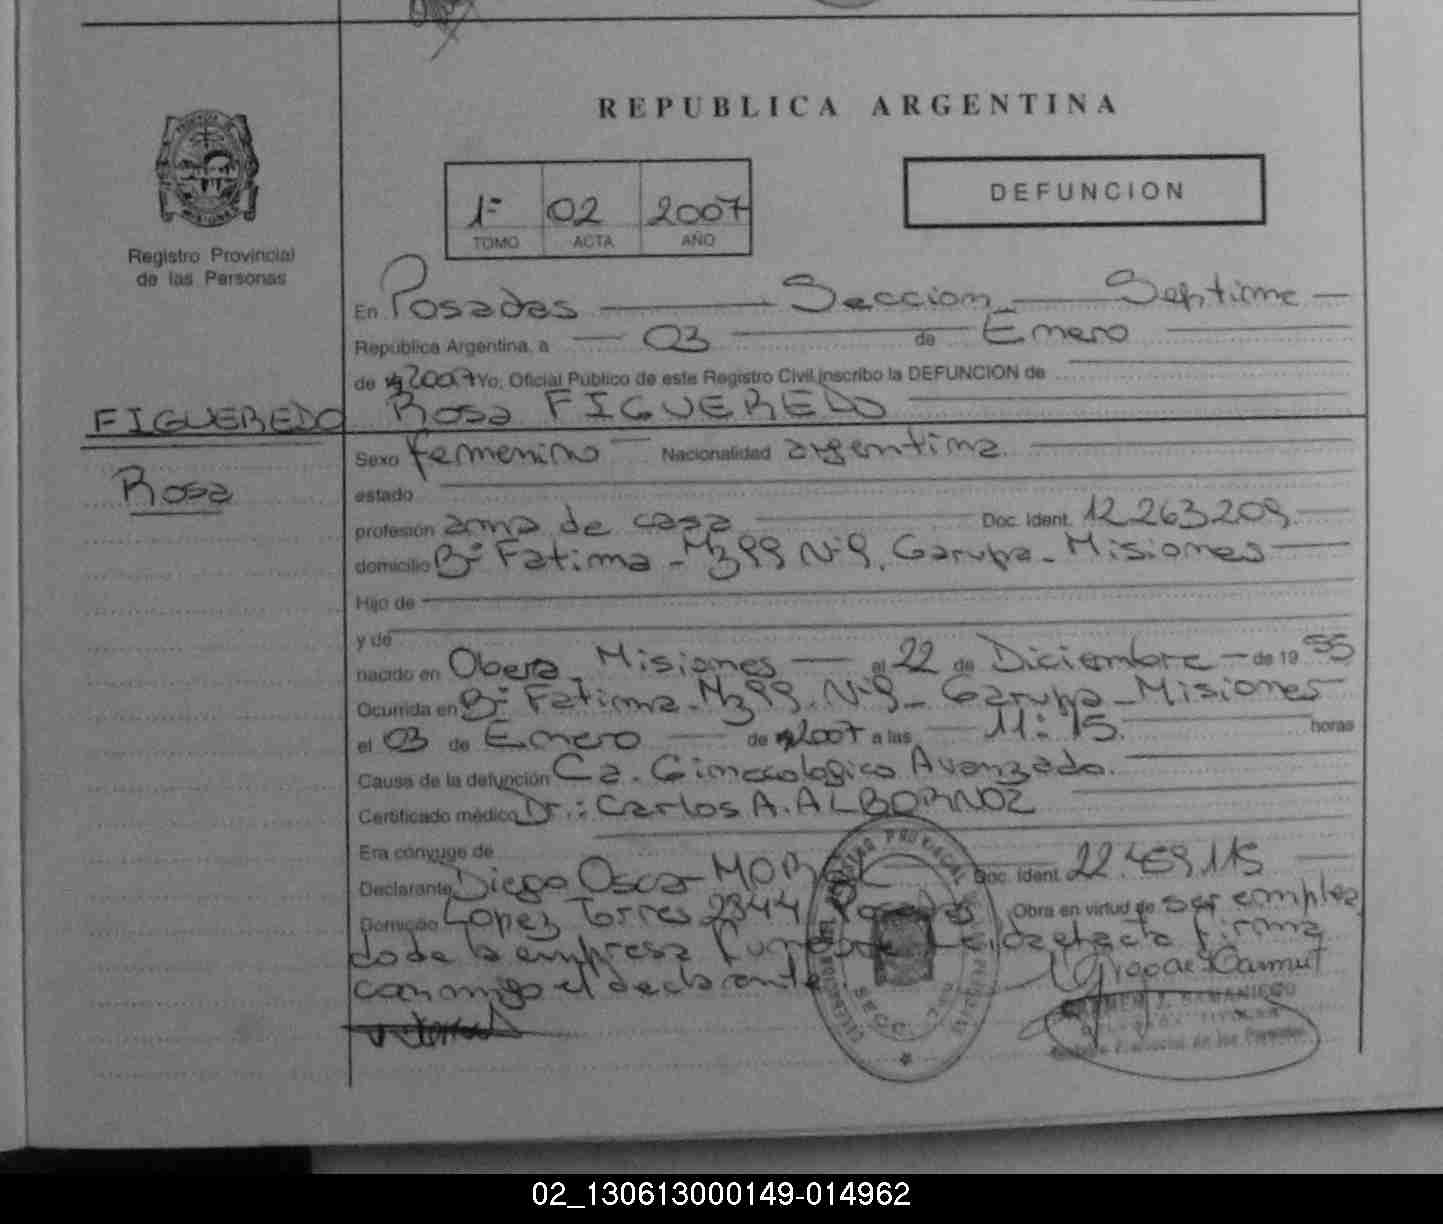 REPUBLICA ARGENTINA
DEFUNCION
1º 02 2007
TOMO ACTA AÑO
Registro Provincial
de las Personas
En Posadas Seccion Septima
Republica Argentina, a 03 de Enero
de 2007 Yo, Oficial Público de este Registro Civil inscribo la DEFUNCION de
FIGUEREDO Rosa FIGUEREDO
Rosa
Sexo femenino Nacionalidad argentina.
estado
profesión ama de casa Doc. Ident. 12.263.209.
domicilio Bº Fatima - Mz 99 Nº 9, Garupa - Misiones
Hijo de
y de
nacido en Obera, Misiones el 22 de Diciembre de 19 55
Ocurrida en Bº Fatima - Mz 99. Nº 9 - Garupa - Misiones
el 03 de Enero de 2007 a las 11:15. horas
Causa de la defunción Ca. Ginecologico Avanzado.
Certificado médico Dr.: Carlos A. ALBORNOZ
Era cónyuge de
Declarante Diego Oscar Doc. Ident. 22.459.115
Domicilio Lopez Torres 2344 Posadas Obra en virtud de ser emplea
do de la empresa Leida el acta firma
conmigo el declarante
02_130613000149-014962